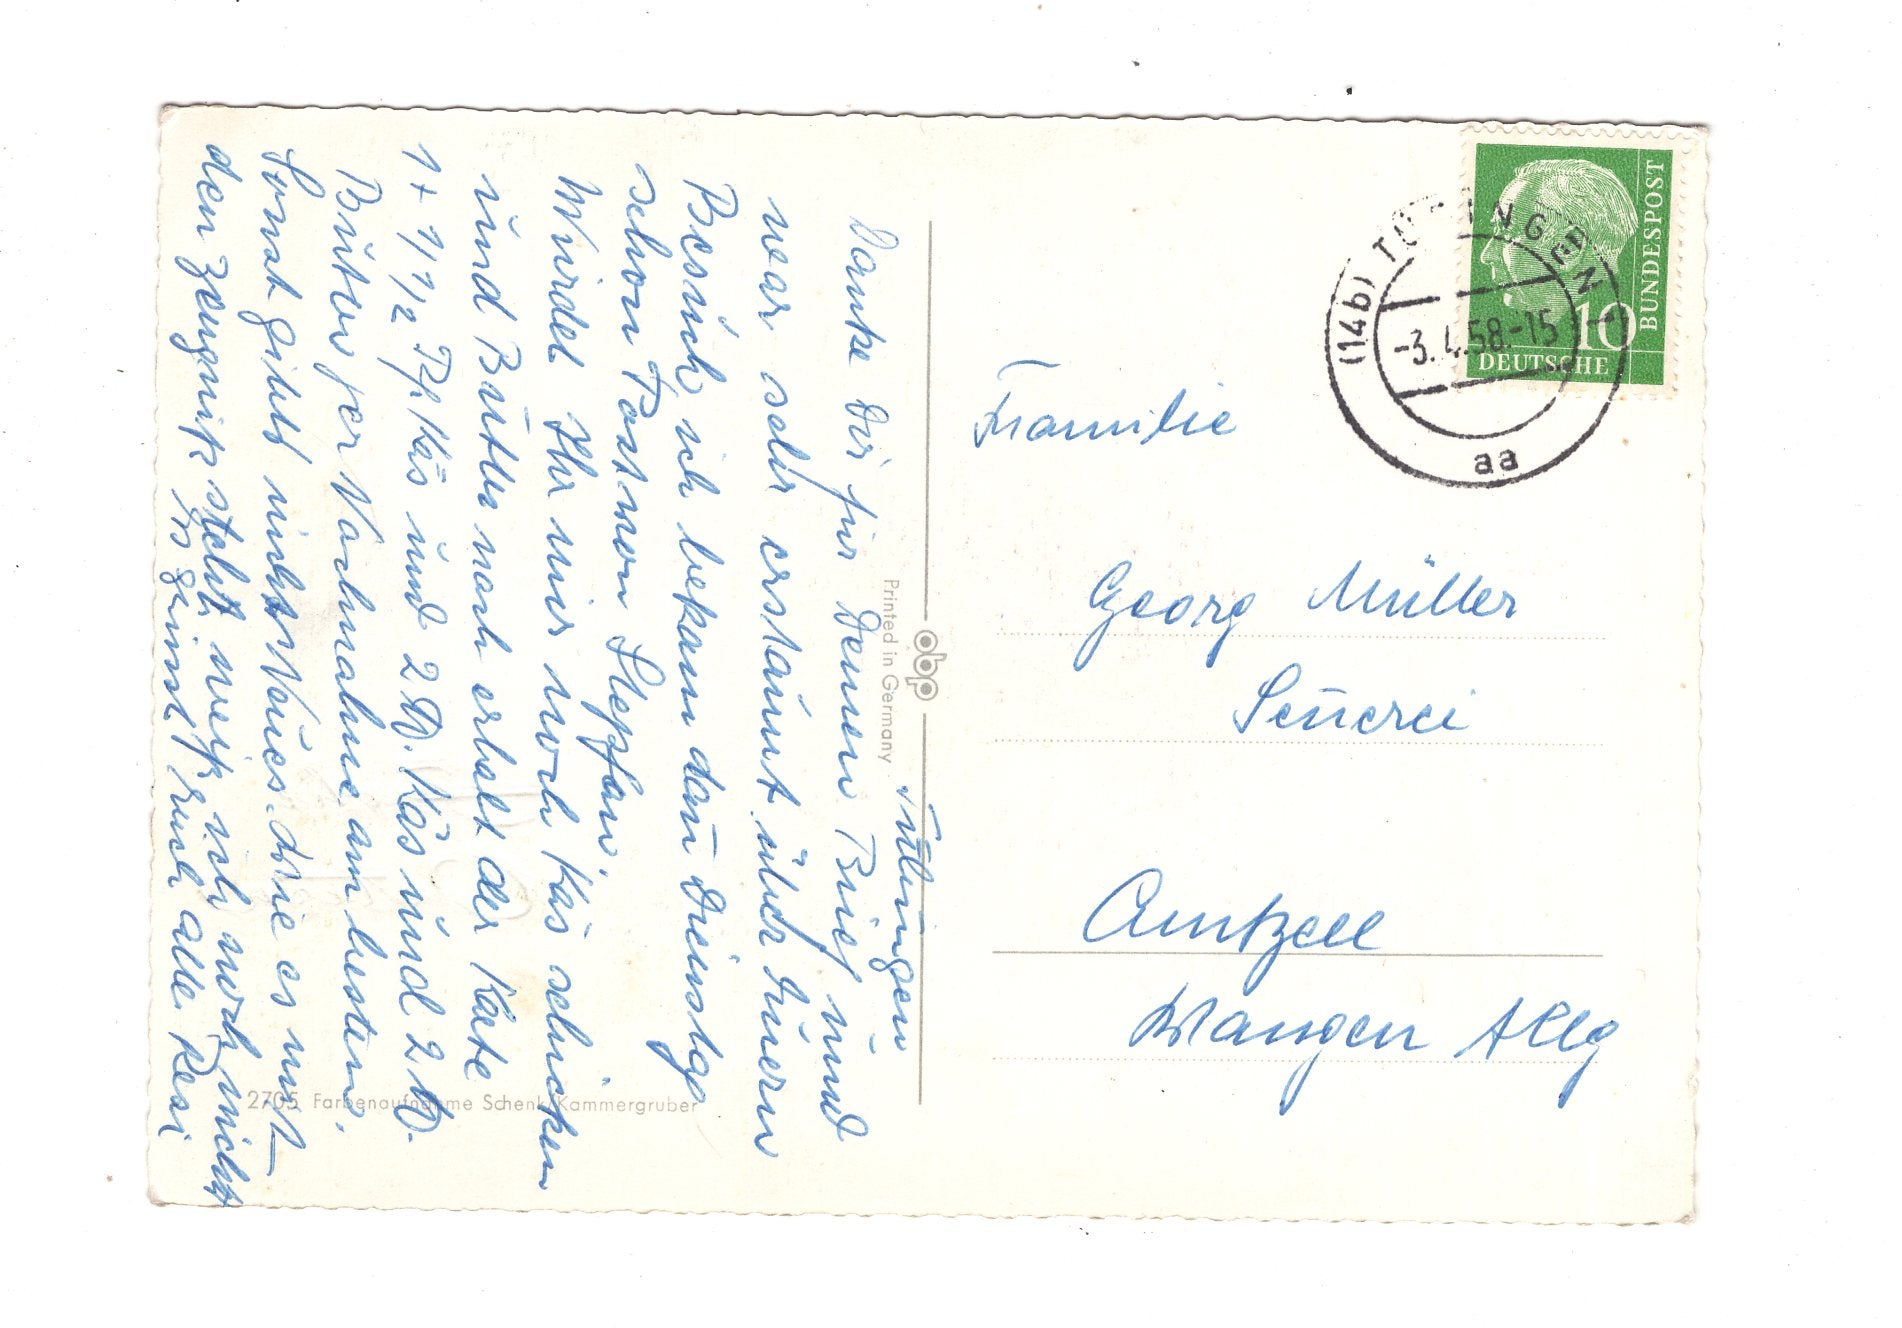 Tübingen
Danke Dir für Deinen Brief und
war sehr erstaunt über Eueren
Besuch, ich bekam dann Dienstag
schon Post von Stepfan.
Würdet Ihr mir noch Käs schicken
und Butter nach erhalt der Karte
1 + 1 1/2 Pf Käs und 2 ℔. Käs und 2 ℔.
Butter per Nachnahme am besten.
Sonst gibt nichts Neues. Wie es mit
den Zeugnis steht weiß ich noch nicht
Es grüsst Euch alle Resi
Printed in Germany
obp
2705 Farbenaufnahme Schenk/Kammergruber
(14b) TÜBINGEN 1
-3.4.58.-15
aa
10
DEUTSCHE
BUNDESPOST
Familie
Georg Müller
Sennerei
Amtzell
Wangen Allg